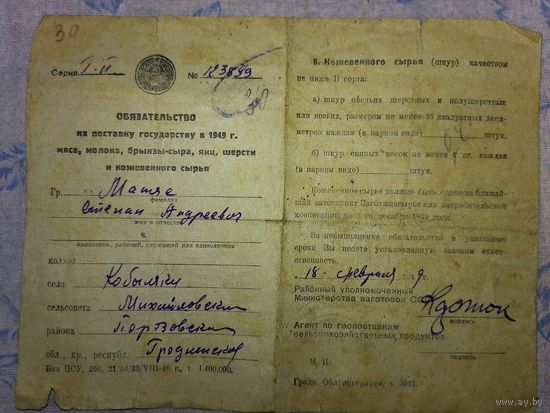 30
Серия Г-Н № 123899
ОБЯЗАТЕЛЬСТВО
на поставку государству в 1949 г.
мяса, молока, брынзы-сыра, яиц, шерсти
и кожевенного сырья
Гр. Матяс
фамилия
Степан Андреевич
имя и отчество
колхозник, рабочий, служащий или единоличник
колхоз
села Кобыляки
сельсовета Михайловский
района Порозовский
обл., кр., республ. Гродненская
Вз ЦСУ, 266. 21/зб/33/VIII-48 г. т. 1.400.000.
б. Кожевенного сырья (шкур) качеством
не ниже II сорта:
а) шкур овечьих шерстных и полушерстных
или козьих, размером не менее 35 квадратных деци-
метров каждая (в парном виде) штук.
б) шкур свиных весом не менее кг. каждая
(в парном виде) штук.
Кожевенное сырье должно быть сдано на ближай-
ший заготпункт Заготживсырье или потребительской
кооперации до 1-го декабря 1949 года.
За невыполнение обязательства в указанные
сроки Вы несете установленную законом ответ-
ственность.
18 февраля 9.
Районный уполномоченный
Министерства заготовок СССР
подпись
Агент по госпоставкам
сельскохозяйственных продуктов
подпись
М. П.
Гродн. Облтипография, з. 3061.
www.ay.by